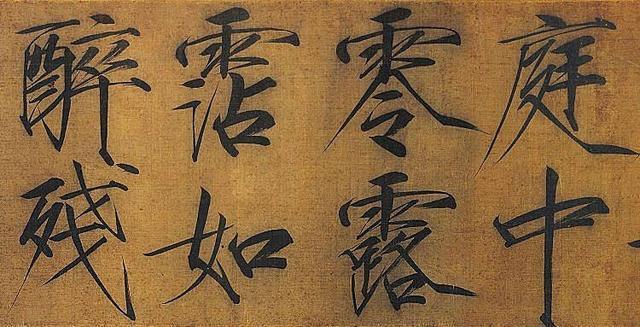 庭中
零露
霑如
醉残